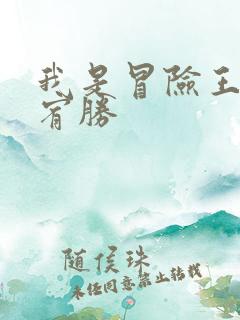 我是冒險王
宥勝
随侯珠
未经同意禁止转载